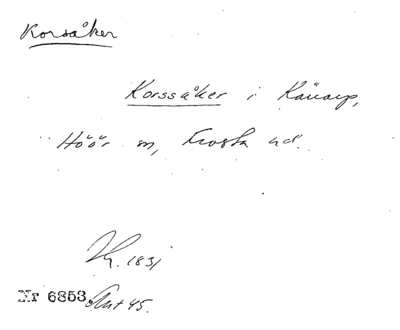 Korsåker
Korssåker i Känarp,
Höör sn, Frosta hd.
1831
Nr 6853 45.